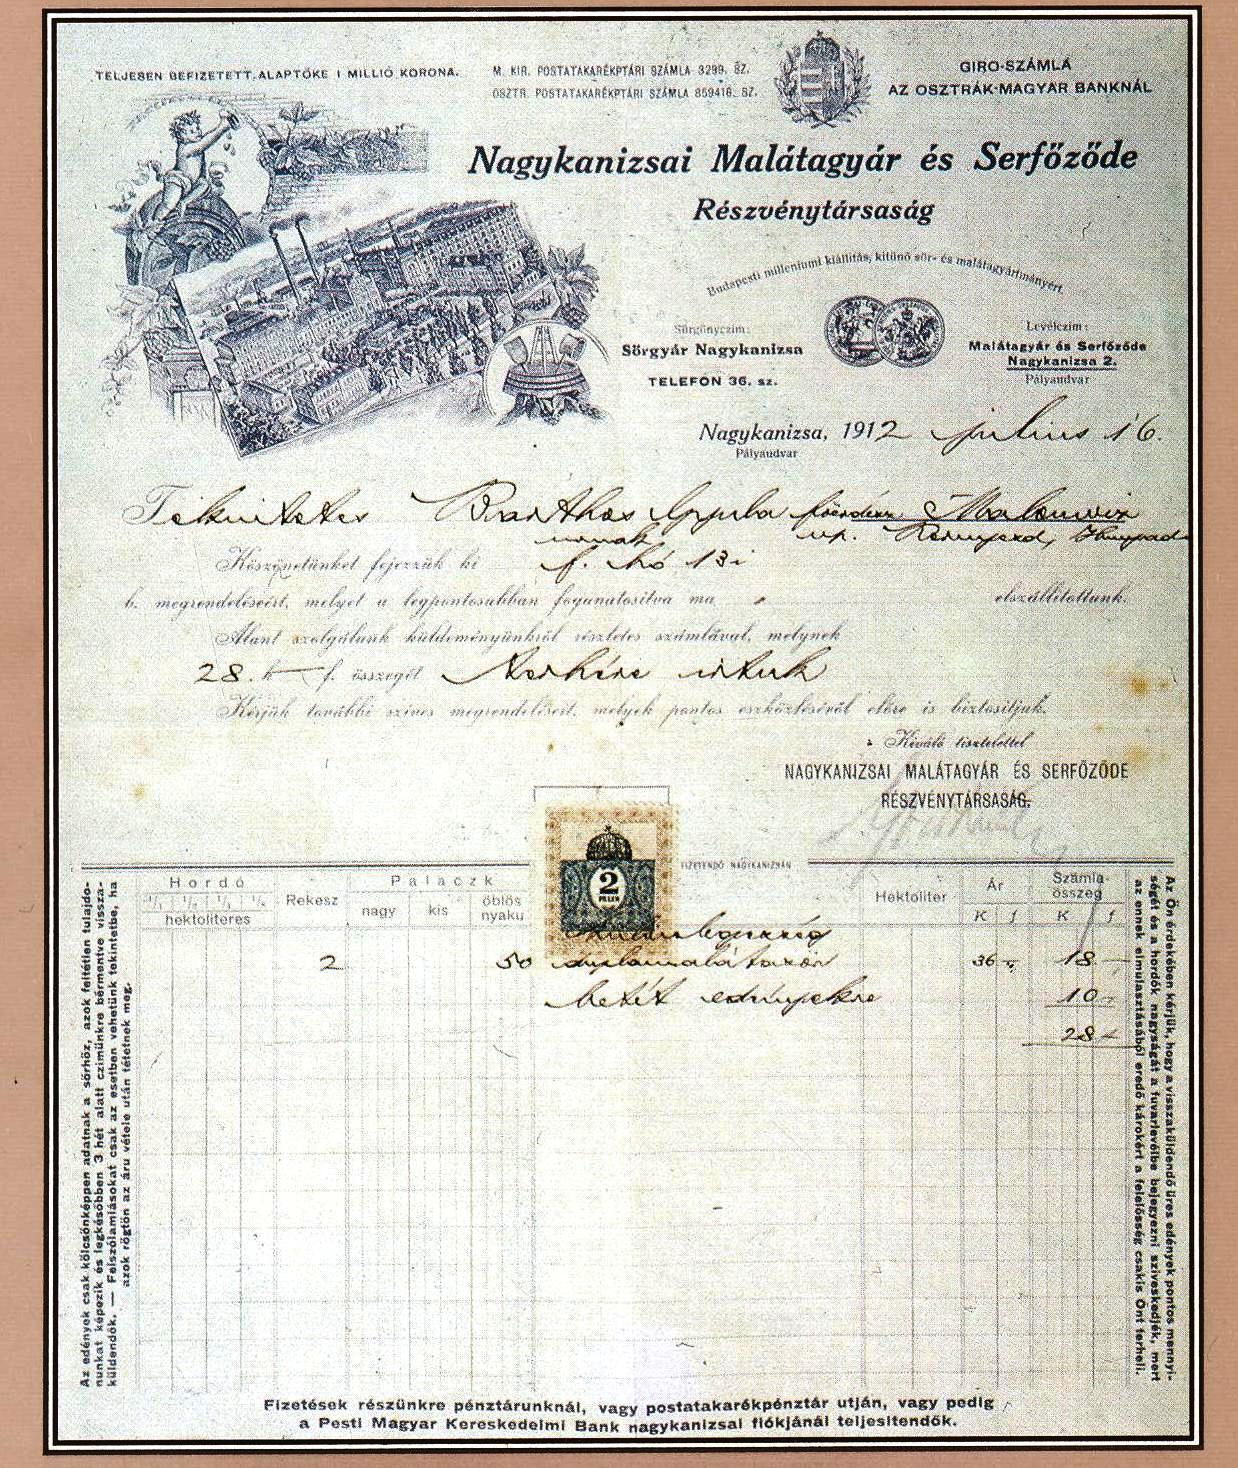 TELJESEN BEFIZETETT ALAPTŐKE 1 MILLIÓ KORONA.
M. KIR. POSTATAKARÉKPTÁRI SZÁMLA 3299. SZ.
OSZTR. POSTATAKARÉKPTÁRI SZÁMLA 859416. SZ.
GIRO-SZÁMLA
AZ OSZTRÁK-MAGYAR BANKNÁL
Nagykanizsai Malátagyár és Serfőződe
Részvénytársaság
Budapesti milleniumi kiállítás, kitünő sör- és malátagyártmányért
Sürgönyczim:
Sörgyár Nagykanizsa
TELEFON 36. sz.
Levélczim:
Malátagyár és Serfőződe
Nagykanizsa 2.
Pályaudvar
Nagykanizsa, 1912 julius 16.
Pályaudvar
Tekintetes Barthos Gyula
urnak
Köszönetünket fejezzük ki f. hó 13i
b. megrendeléseért, melyet a legpontosabban foganatositva ma elszállitottunk.
Alant szolgálunk küldeményünkről részletes számlával, melynek
28. k f. összegét terhére irtuk
Kérjük további szives megrendeléseit, melyek pontos eszközléséről előre is biztositjuk.
Kiváló tisztelettel
NAGYKANIZSAI MALÁTAGYÁR ÉS SERFŐZŐDE
RÉSZVÉNYTÁRSASÁG.
2
FILLÉR
FIZETENDŐ NAGYKANIZSÁN
Hordó
hektoliteres
Rekesz
Palaczk
nagy kis öblös nyaku
Hektoliter
Ár
K f
Számla-összeg
K f
2 50 duplamalátasör 36 18
betét edényekre 10
28
Az edények csak kölcsönképpen adatnak a sörhöz, azok feltétlen tulajdo-
nunkat képezik és legkésőbben 3 hét alatt czimünkre bérmentve vissza-
küldendők. — Felszólamlásokat csak az esetben vehetünk tekintetbe, ha
azok rögtön az áru vétele után tétetnek meg.
Az Ön érdekében kérjük, hogy a visszaküldendő üres edények pontos mennyi-
ségét és a hordók nagyságát a fuvarlevélbe bejegyezni sziveskedjék, mert
az ennek elmulasztásából eredő károkért a felelősség csakis Önt terheli.
Fizetések részünkre pénztárunknál, vagy postatakarékpénztár utján, vagy pedig
a Pesti Magyar Kereskedelmi Bank nagykanizsai fiókjánál teljesitendők.